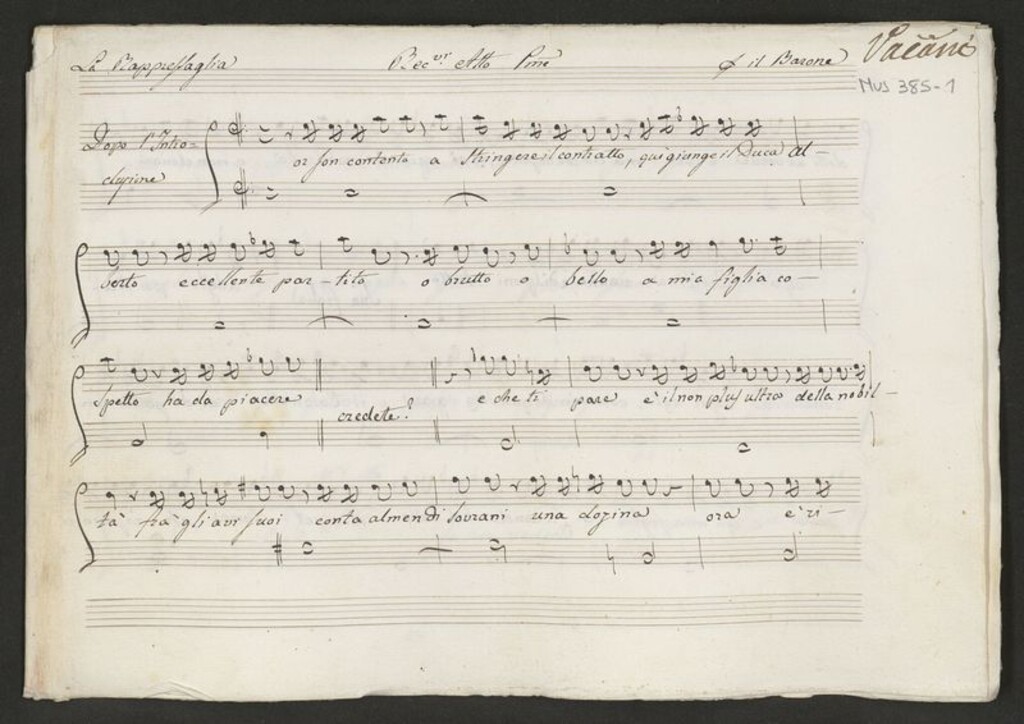 La Rappresaglia Rec.vi Atto Pmo p il Barone Vacani
Mus 385-1
Dopo l'Intro=
duzione
or son contento a stringere il contratto, qui giunge il Duca Al-
berto eccellente par-tito o brutto o bello a mia figlia co-
spetto ha da piacere credete? e che ti pare è il non plus ultra della nobil-
tà frà gli avi suoi conta almen di sovrani una dozina ora è ri-